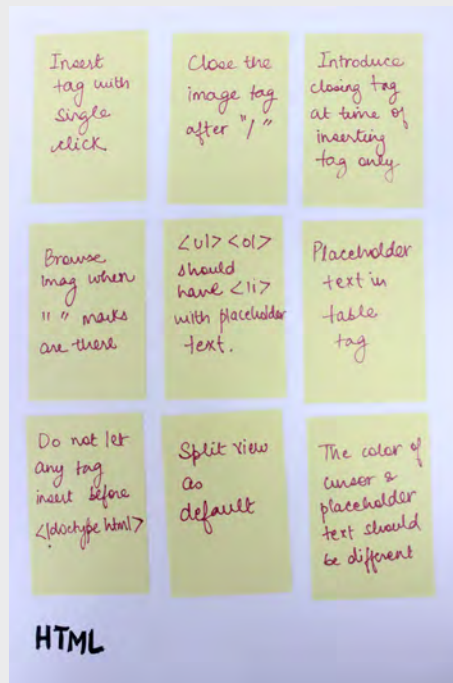 Insert
tag with
single
click
Close the
image tag
after "/"
Introduce
closing tag
at time of
inserting
tag only
Browse
imag when
" " marks
are there
<ul> <ol>
should
have <li>
with placeholder
text.
Placeholder
text in
table
tag
Do not let
any tag
insert before
<!doctype html>
Split view
as
default
The color of
cursor &
placeholder
text should
be different
HTML